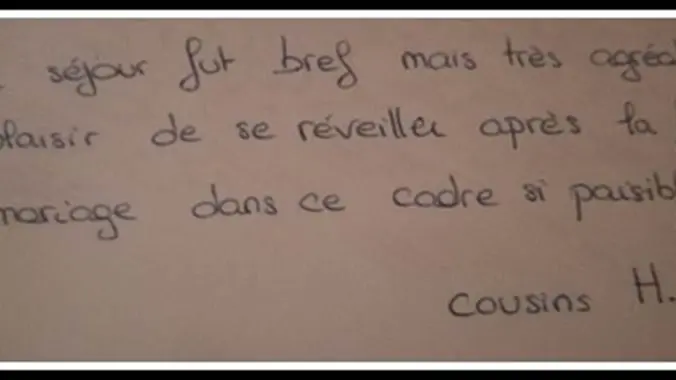 séjour fut bref mais très agréa
plaisir de se réveiller après la
mariage dans ce cadre si paisibl
cousins H.